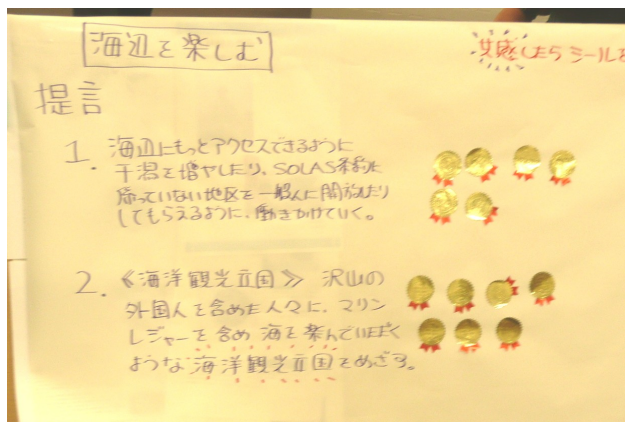 海辺を楽しむ
共感したら シールを
提言
1. 海辺にもっとアクセスできるように
干潟を増やしたり、SOLAS条約に
なっていない地区を一般人に開放したり
してもらえるように、働きかけていく。
2. 《海洋観光立国》 沢山の
外国人を含めた人々に、マリン
レジャーを含め 海を楽んでいただく
ような 海洋観光立国をめざす。